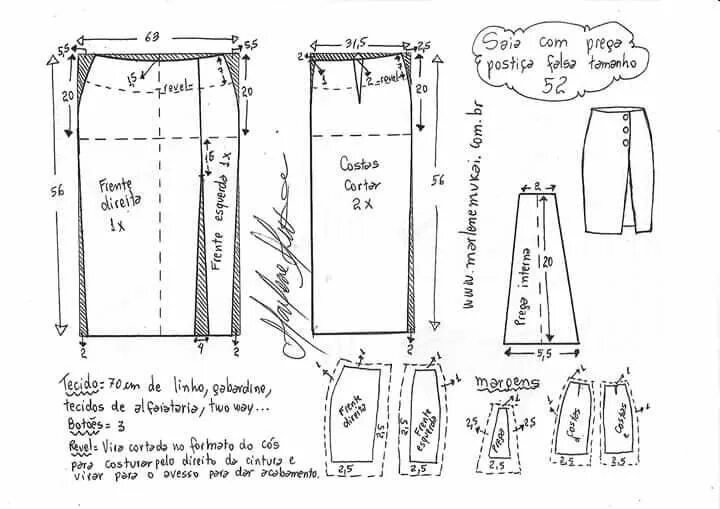 63
5,5
5,5
20
20
56
1,5
revel
3
6
Frente
direita
1x
Frente esquerda 1x
2
4
2
31,5
2
2,5
1
2
revel
20
56
Costas
Cortar
2x
2
Marlene Mukai
Saia com prega
postiça falsa tamanho
52
www.marlenemukai.com.br
2
20
Prega interna
5,5
Tecido= 70 cm de linho, gabardine,
tecidos de alfaiataria, two way...
Botões= 3
Revel= Vira cortada no formato do cós
para costurar pelo direito da cintura e
virar para o avesso para dar acabamento.
1
1
Frente
direita
2,5
2,5
1
Frente
esquerda
2,5
2,5
margens
1
2,5
Prega
2,5
2,5
1
1
Costas
d
2,5
1
Costas
e
2,5